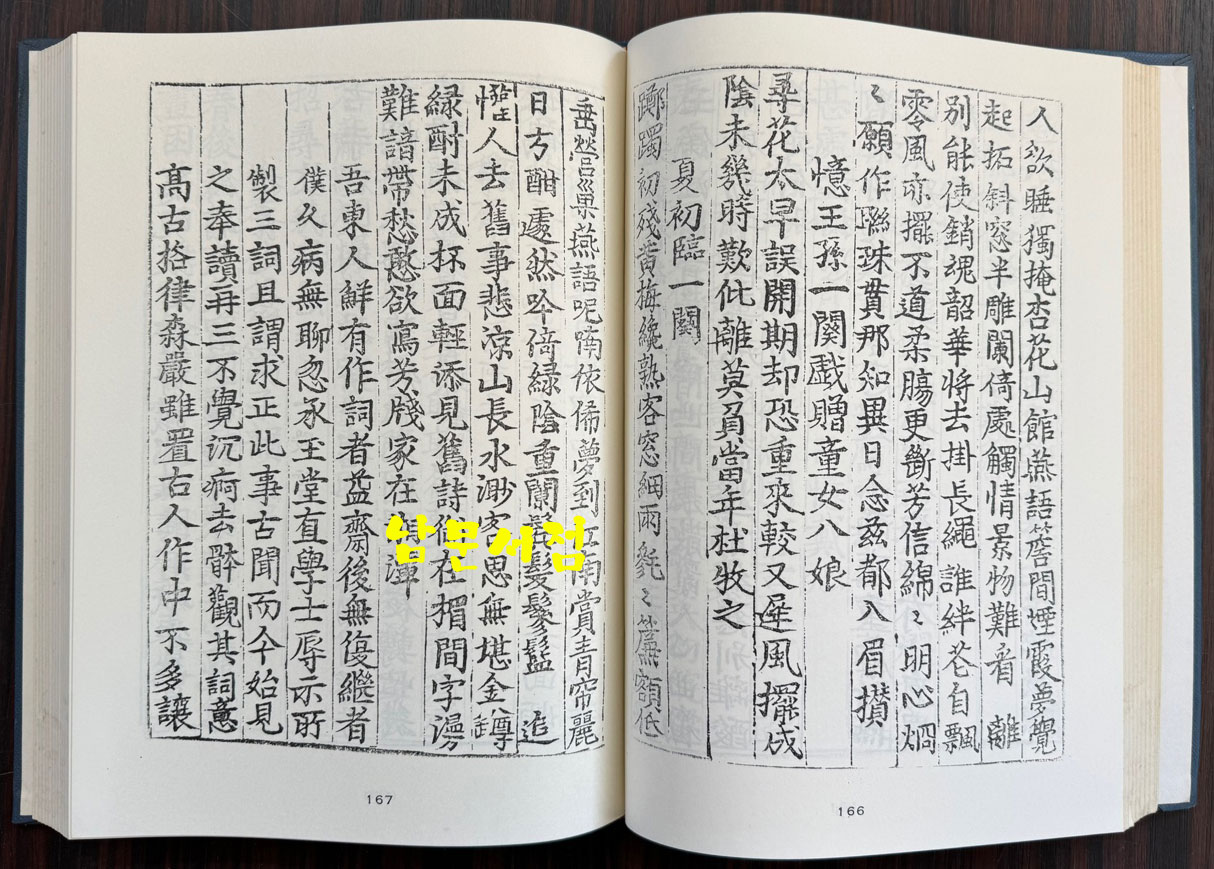 人欲睡獨掩杏花山館燕語簷間煙霞夢覺
起拓斜窓半雕闌倚處觸情景物難看 離
別能使銷魂韶華將去掛長繩誰絆花自飄
零風亦擺不道柔腸更斷芳信綿〻明心炯
〻願作聯珠貫那知異日念玆都入眉攢
憶王孫一闋戱贈童女八娘
尋花太早誤開期却恐重來較又遲風擺成
陰未幾時歎仳離莫負當年杜牧之
夏初臨一闋
躑躅初殘黃梅纔熟客窓細雨毿〻簾額低
垂營巢燕語呢喃依俙夢到江南賞靑帘麗
日方酣遽然吟倚綠陰重闌髻髮鬖䰐 追
惟人去舊事悲凉山長水渺客思無堪金罇
綠酎未成杯面輕添見舊詩俗在楣間字漫
難諳帶愁憨欲寫芳牋家在湘潭
吾東人鮮有作詞者益齋後無復繼者
僕久病無聊忽承玉堂直學士辱示所
製三詞且謂求正此事古聞而今始見
之奉讀再三不覺沉痾去骵觀其詞意
高古格律森嚴雖置古人作中不多讓
남문서점
167
166